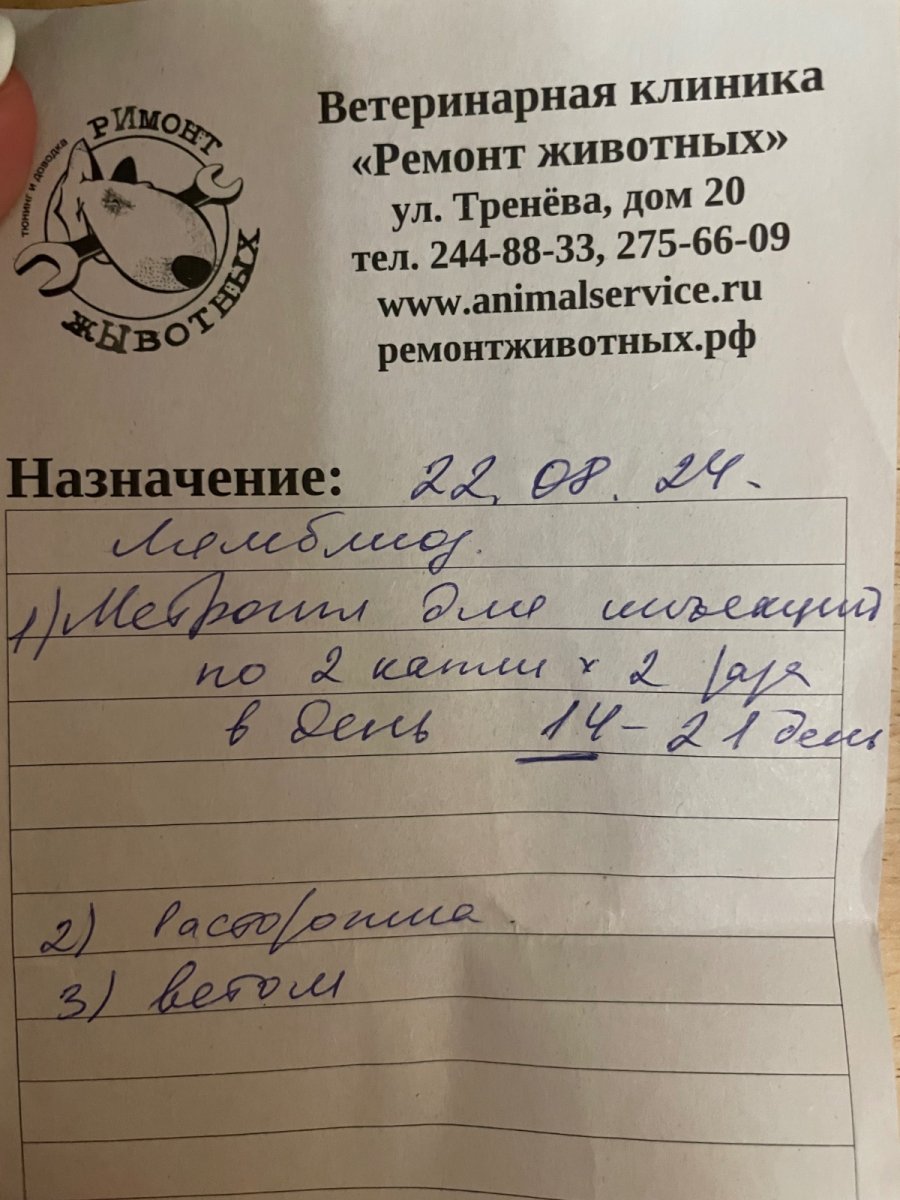 РИМОНТ
тюнинг и доводка
ЖЫВОТНЫХ
Ветеринарная клиника
«Ремонт животных»
ул. Тренёва, дом 20
тел. 244-88-33, 275-66-09
www.animalservice.ru
ремонтживотных.рф
Назначение: 22.08.24.
Лямблиоз.
1) Метрогил для инъекций
по 2 капли × 2 раза
в день 14-21 день
2) Расторопша
3) Ветом